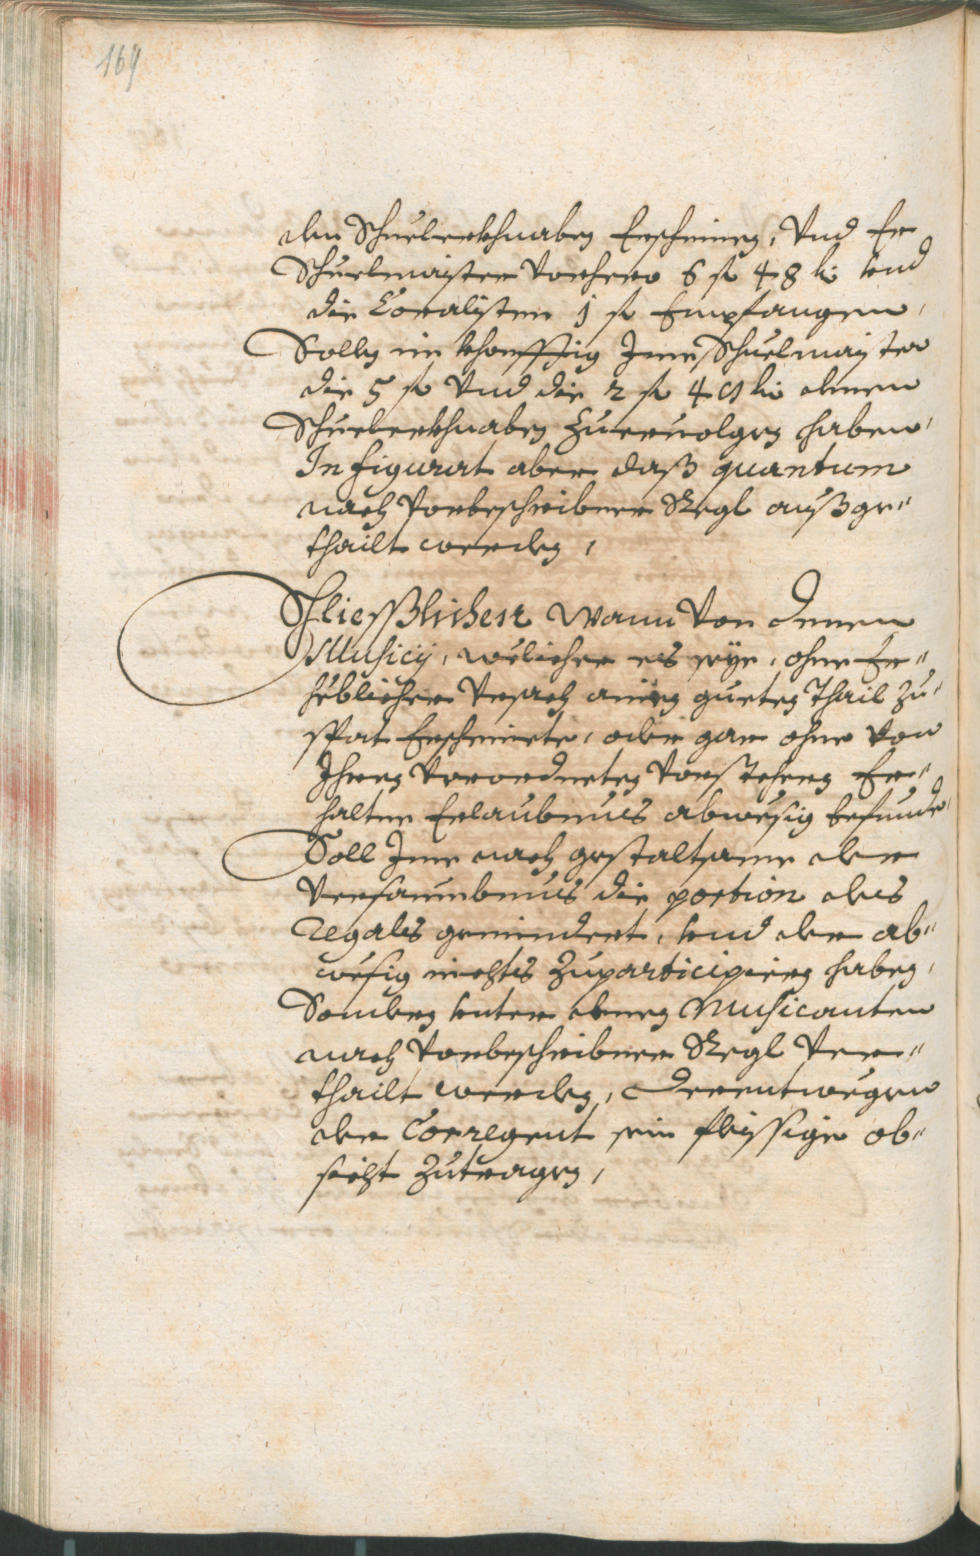 169
den Schuelerkhnaben Erscheinen, Vnd Er
Schuelmaister Vorhero 6 fl 48 kr vnd
die Coralisten 1 fl Empfangen,
Sollen im khonfftig Jme Schuelmaister
die 5 fl Vnd die 2 fl 48 kr denen
Schuelerkhnaben Zueruolgen haben,
In figurat aber daß quantum
nach Vorbeschribner Regl außge„
thailt werden,
Schliesslichest Wann Von denen
Musicij, welicher es seye, ohne Er„
heblicher Vrsach ainen gueten Thail zu„
spat Erscheinete, oder gar ohne von
Jhren Verordneten Vorstehern Er„
haltne Erlaubnus abwesig befunde,
Soll Jme nach gestaltsame der
Versaumbnus die portion des
regales gemindert, vnd der ab„
wesig nichts Zuparticipiren haben,
Sondern vnter denen Musicanten
nach Vorbeschribner Regl Ver„
thailt werden, Derentwegen
der Corregent sein fleissige ob„
sicht Zutragen,